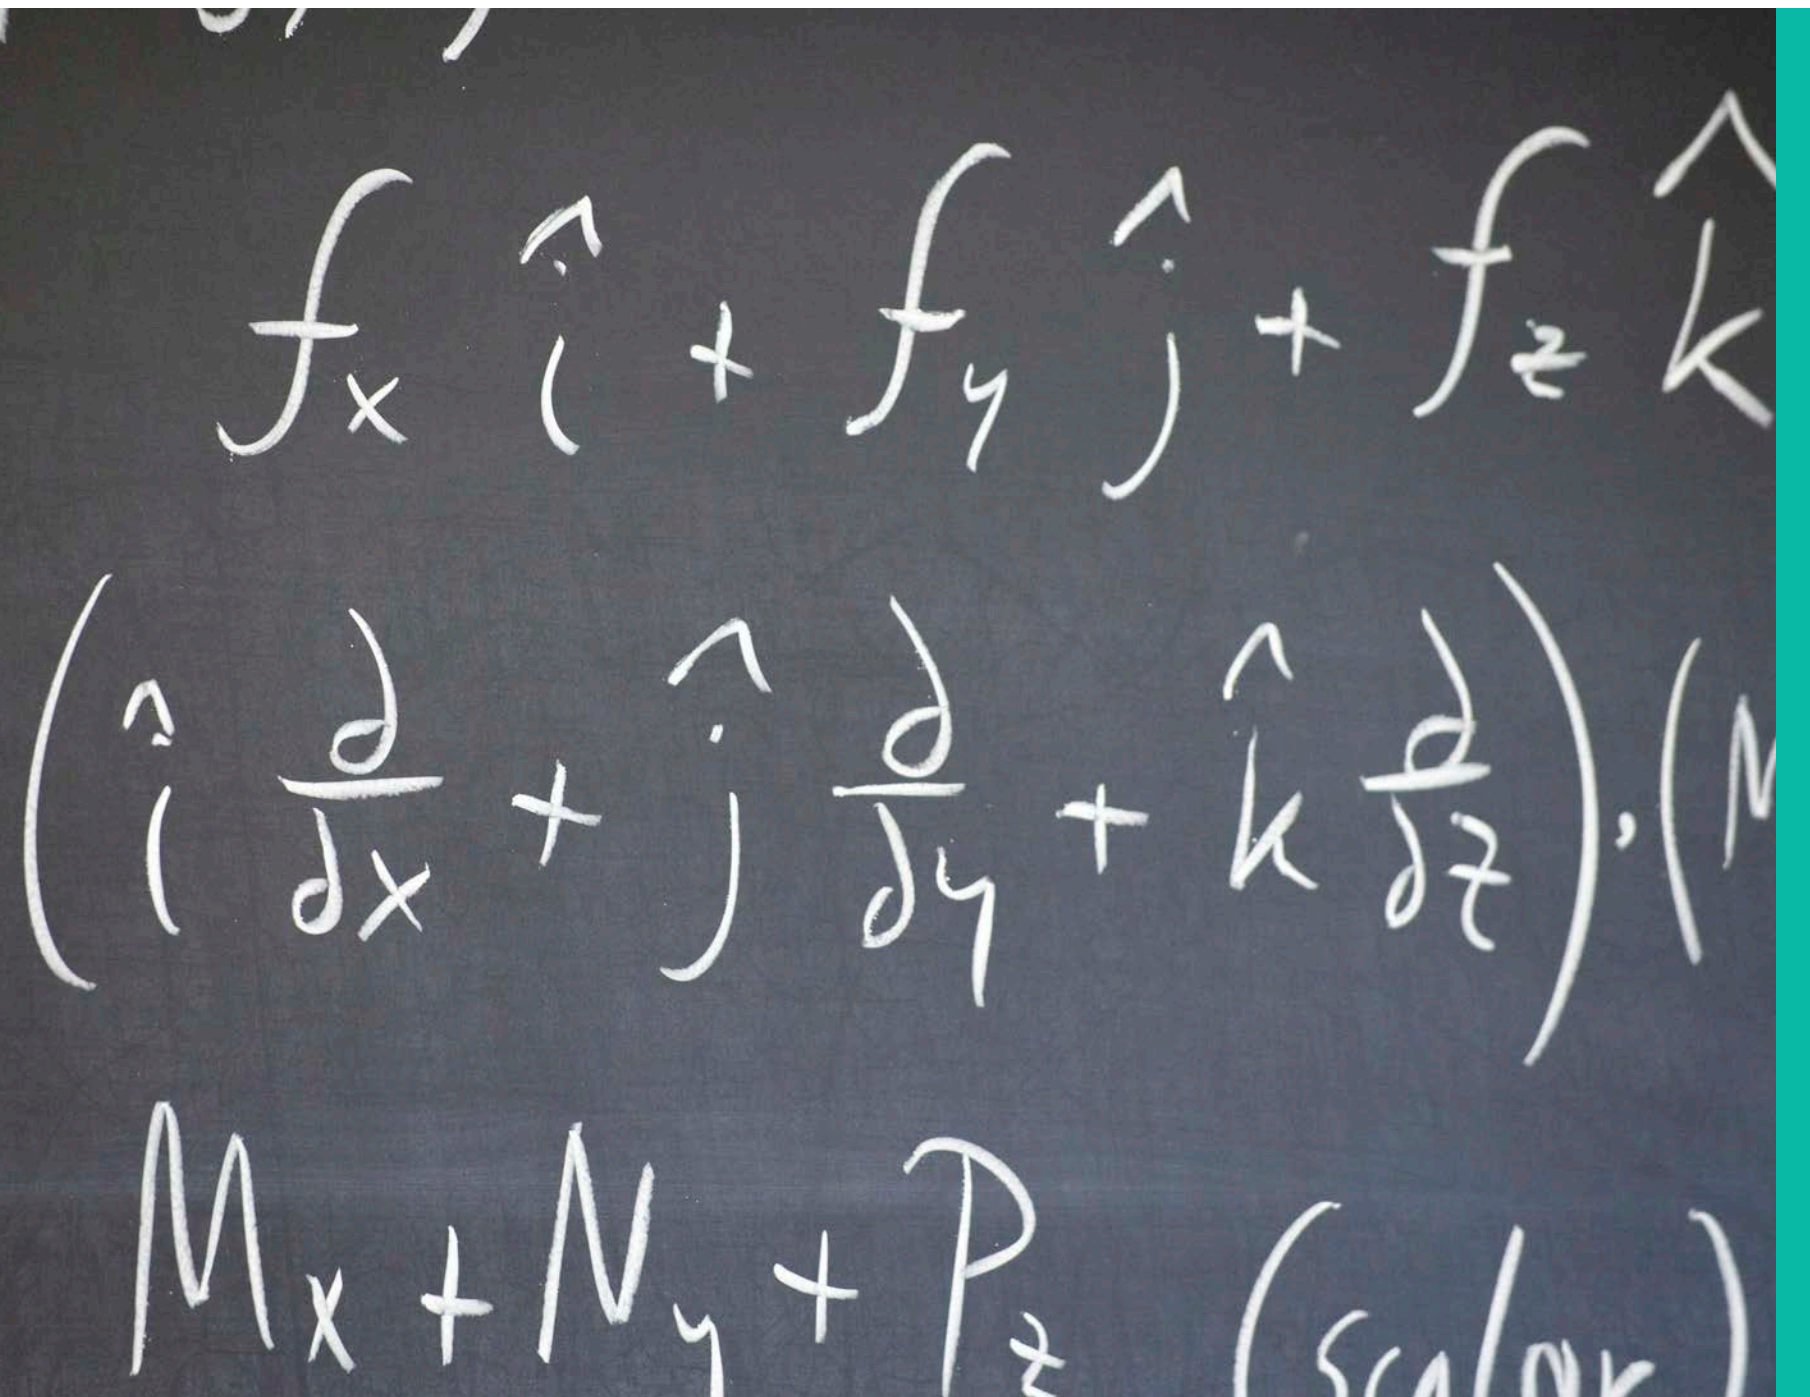 f_x î + f_y ĵ + f_z k̂
(î ∂/∂x + ĵ ∂/∂y + k̂ ∂/∂z) · (M
M_x + N_y + P_z (scalar)